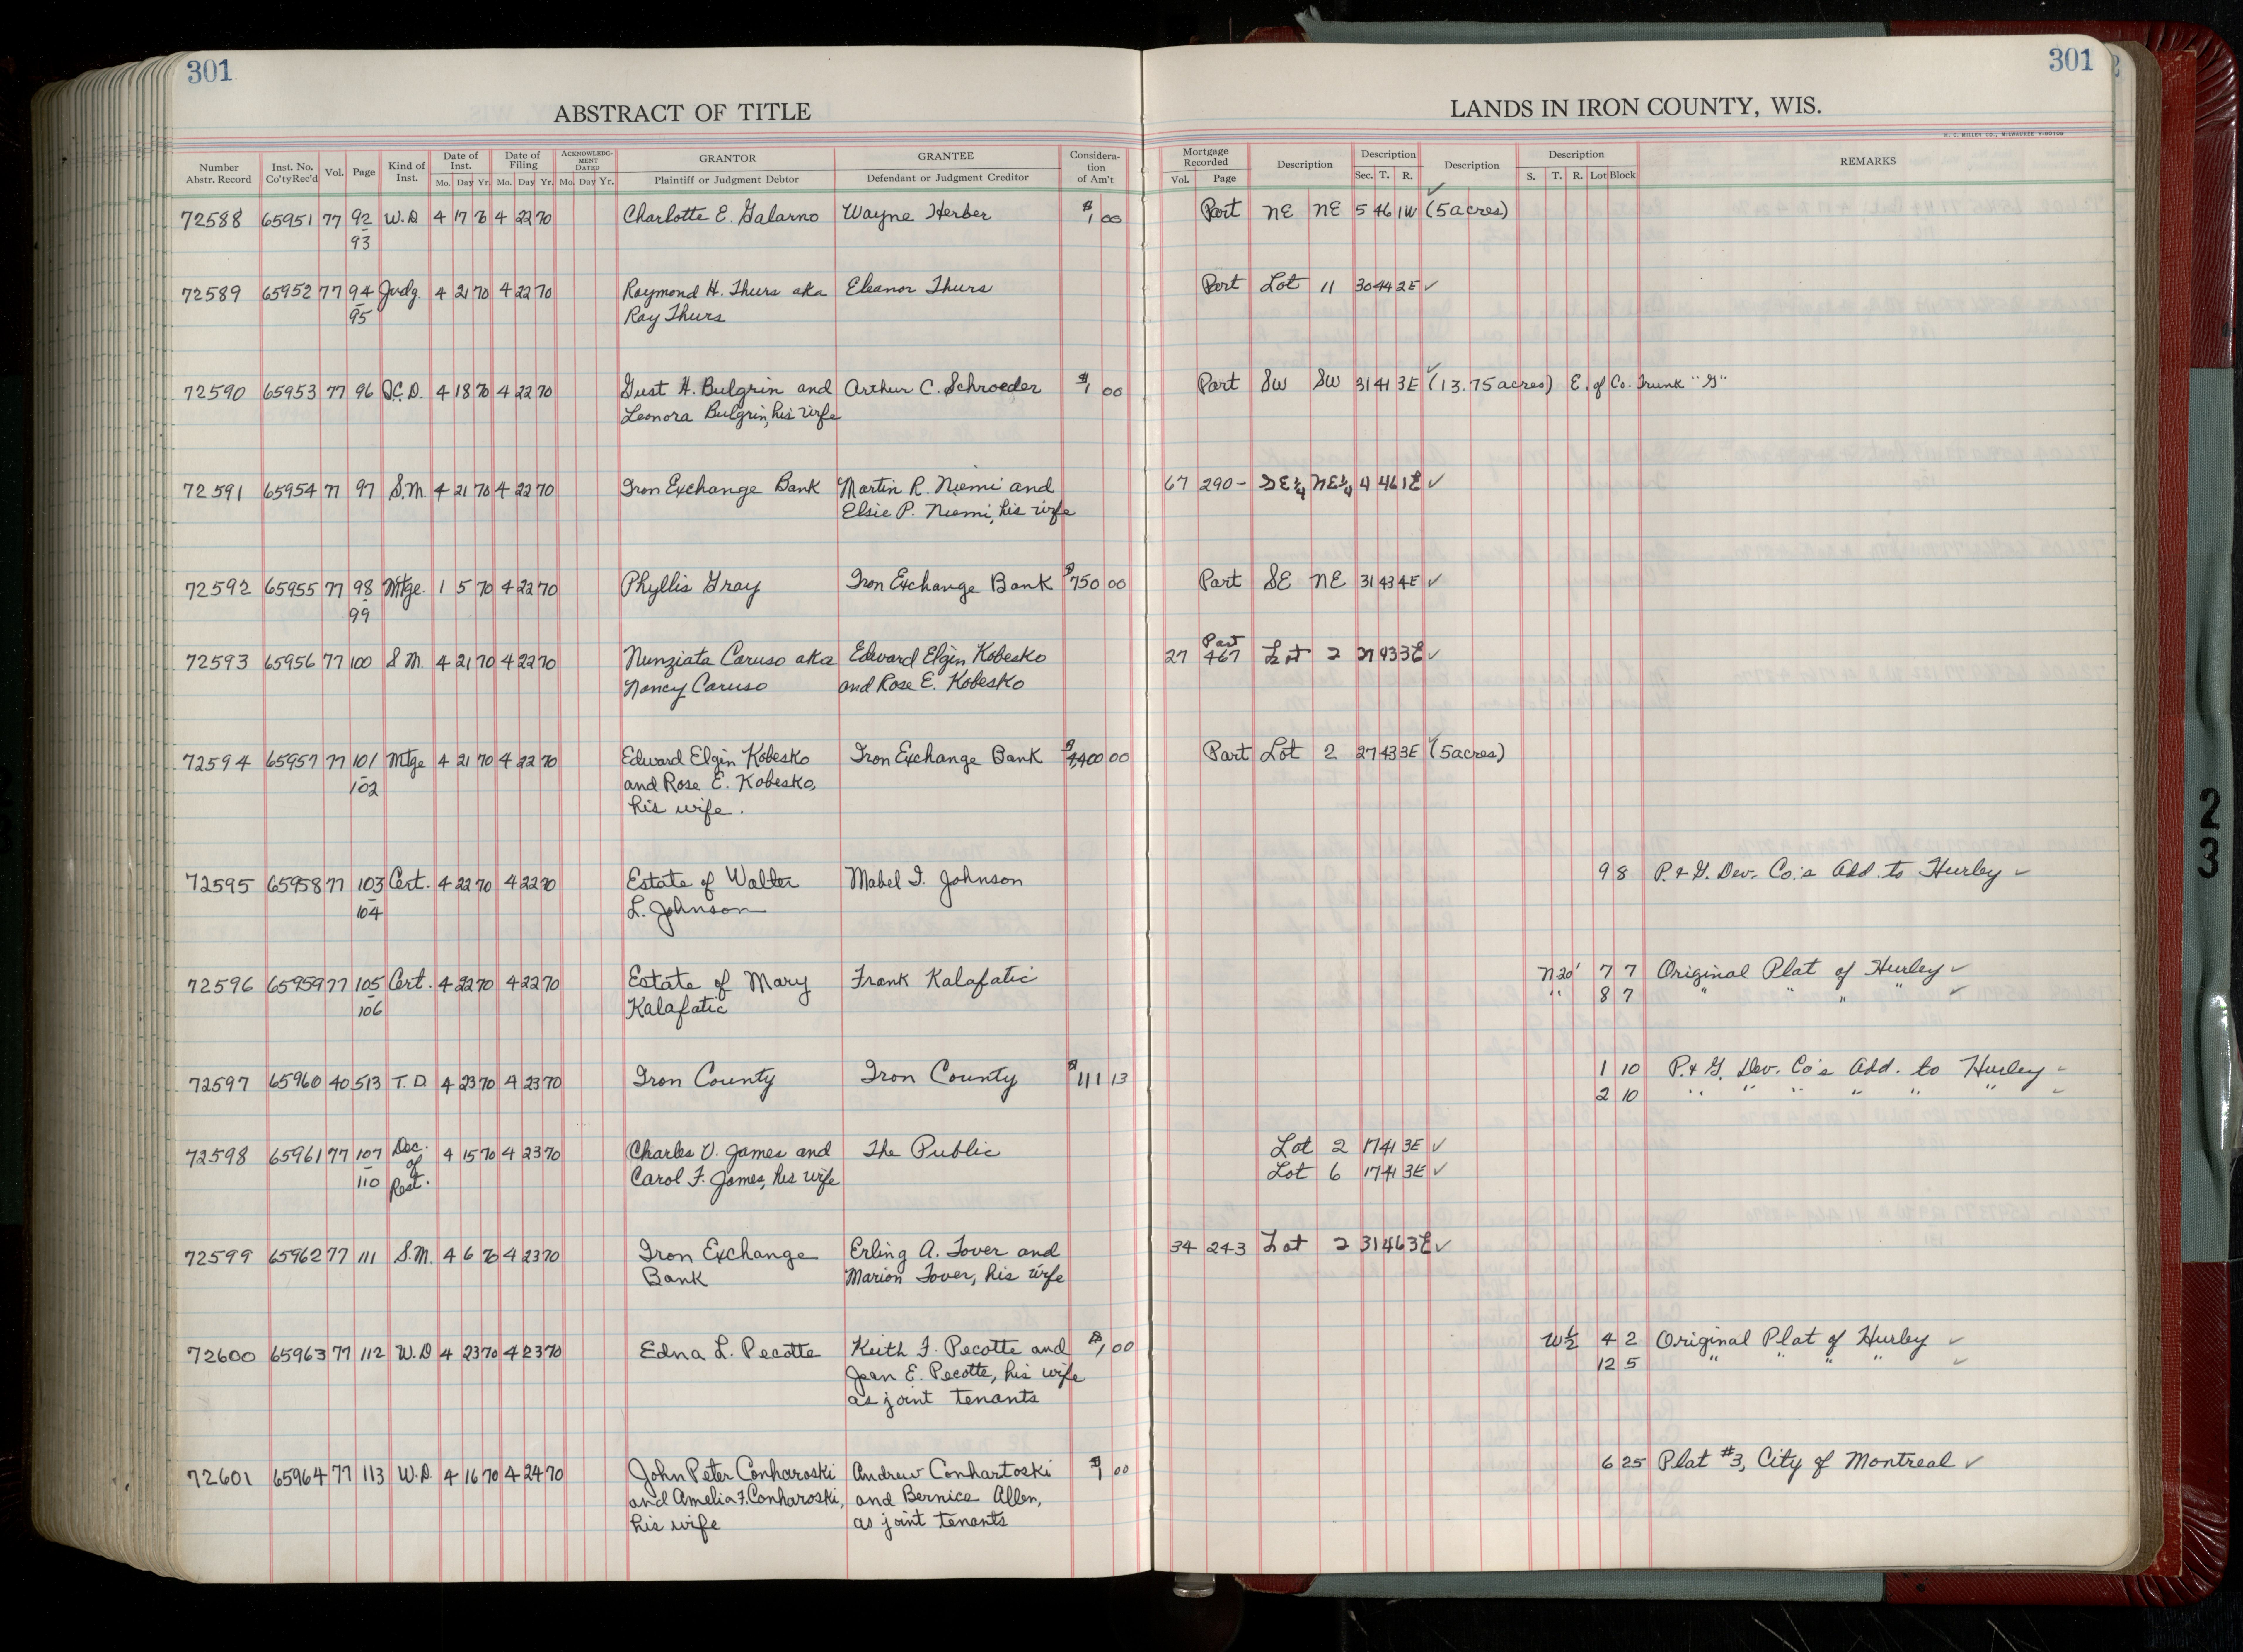 301
301
ABSTRACT OF TITLE
LANDS IN IRON COUNTY, WIS.
H. C. MILLER CO., MILWAUKEE
Number Abstr. Record Inst. No. Co'ty Rec'd Vol. Page Kind of Inst. Date of Inst. Mo. Day Yr. Date of Filing Mo. Day Yr. ACKNOWLEDGMENT DATED Mo. Day Yr. GRANTOR Plaintiff or Judgment Debtor GRANTEE Defendant or Judgment Creditor Consideration of Am't Mortgage Recorded Vol. Page Description Description Sec. T. R. Description Description S. T. R. Lot Block REMARKS
72588 65951 77 92 W.D 4 17 70 4 22 70 Charlotte E. Galarno Wayne Herber $1 00 Part NE NE 5 46 1W (5 acres) ✓
93
72589 65952 77 94 Judg. 4 21 70 4 22 70 Raymond H. Thurs aka Eleanor Thurs Part Lot 11 30 44 2E ✓
95 Ray Thurs
72590 65953 77 96 Q.C.D. 4 18 70 4 22 70 Gust H. Bulgrin and Arthur C. Schroeder $1 00 Part SW SW 31 41 3E ✓ (13.75 acres) E. of Co. Trunk "G"
Leonora Bulgrin, his wife
72591 65954 77 97 S.M. 4 21 70 4 22 70 Iron Exchange Bank Martin R. Niemi and 67 290- SE¼ NE¼ 4 46 1E ✓
Elsie P. Niemi, his wife
72592 65955 77 98 Mtge. 1 5 70 4 22 70 Phyllis Gray Iron Exchange Bank $750 00 Part SE NE 31 43 4E ✓
99
72593 65956 77 100 S M. 4 21 70 4 22 70 Nunziata Caruso aka Edward Elgin Kobesko 27 467 Part Lot 2 27 43 3E ✓
Nancy Caruso and Rose E. Kobesko
72594 65957 77 101 Mtge 4 21 70 4 22 70 Edward Elgin Kobesko Iron Exchange Bank $4,400 00 Part Lot 2 27 43 3E ✓ (5 acres)
102 and Rose E. Kobesko,
his wife.
72595 65958 77 103 Cert. 4 22 70 4 22 70 Estate of Walter Mabel I. Johnson 9 8 P. & G. Dev. Co.'s Add. to Hurley ✓
104 L. Johnson
72596 65959 77 105 Cert. 4 22 70 4 22 70 Estate of Mary Frank Kalafatic N 20' 7 7 Original Plat of Hurley ✓
106 Kalafatic " 8 7 " " " " ✓
72597 65960 40 513 T.D. 4 23 70 4 23 70 Iron County Iron County $111 13 1 10 P. & G. Dev. Co's Add. to Hurley ✓
2 10 " " " " " " ✓
72598 65961 77 107 Dec. of Rest. 4 15 70 4 23 70 Charles V. James and The Public Lot 2 17 41 3E ✓
110 Carol F. James, his wife Lot 6 17 41 3E ✓
72599 65962 77 111 S.M. 4 6 70 4 23 70 Iron Exchange Erling A. Tover and 34 243 Lot 2 31 46 3E ✓
Bank Marion Tover, his wife
72600 65963 77 112 W.D 4 23 70 4 23 70 Edna L. Pecotte Keith F. Pecotte and $1 00 W½ 4 2 Original Plat of Hurley ✓
Jean E. Pecotte, his wife 12 5 " " " " ✓
as joint tenants
72601 65964 77 113 W.D. 4 16 70 4 24 70 John Peter Conharoski Andrew Conhartoski $1 00 6 25 Plat #3, City of Montreal ✓
and Amelia F. Conharoski, and Bernice Allen,
his wife as joint tenants
23